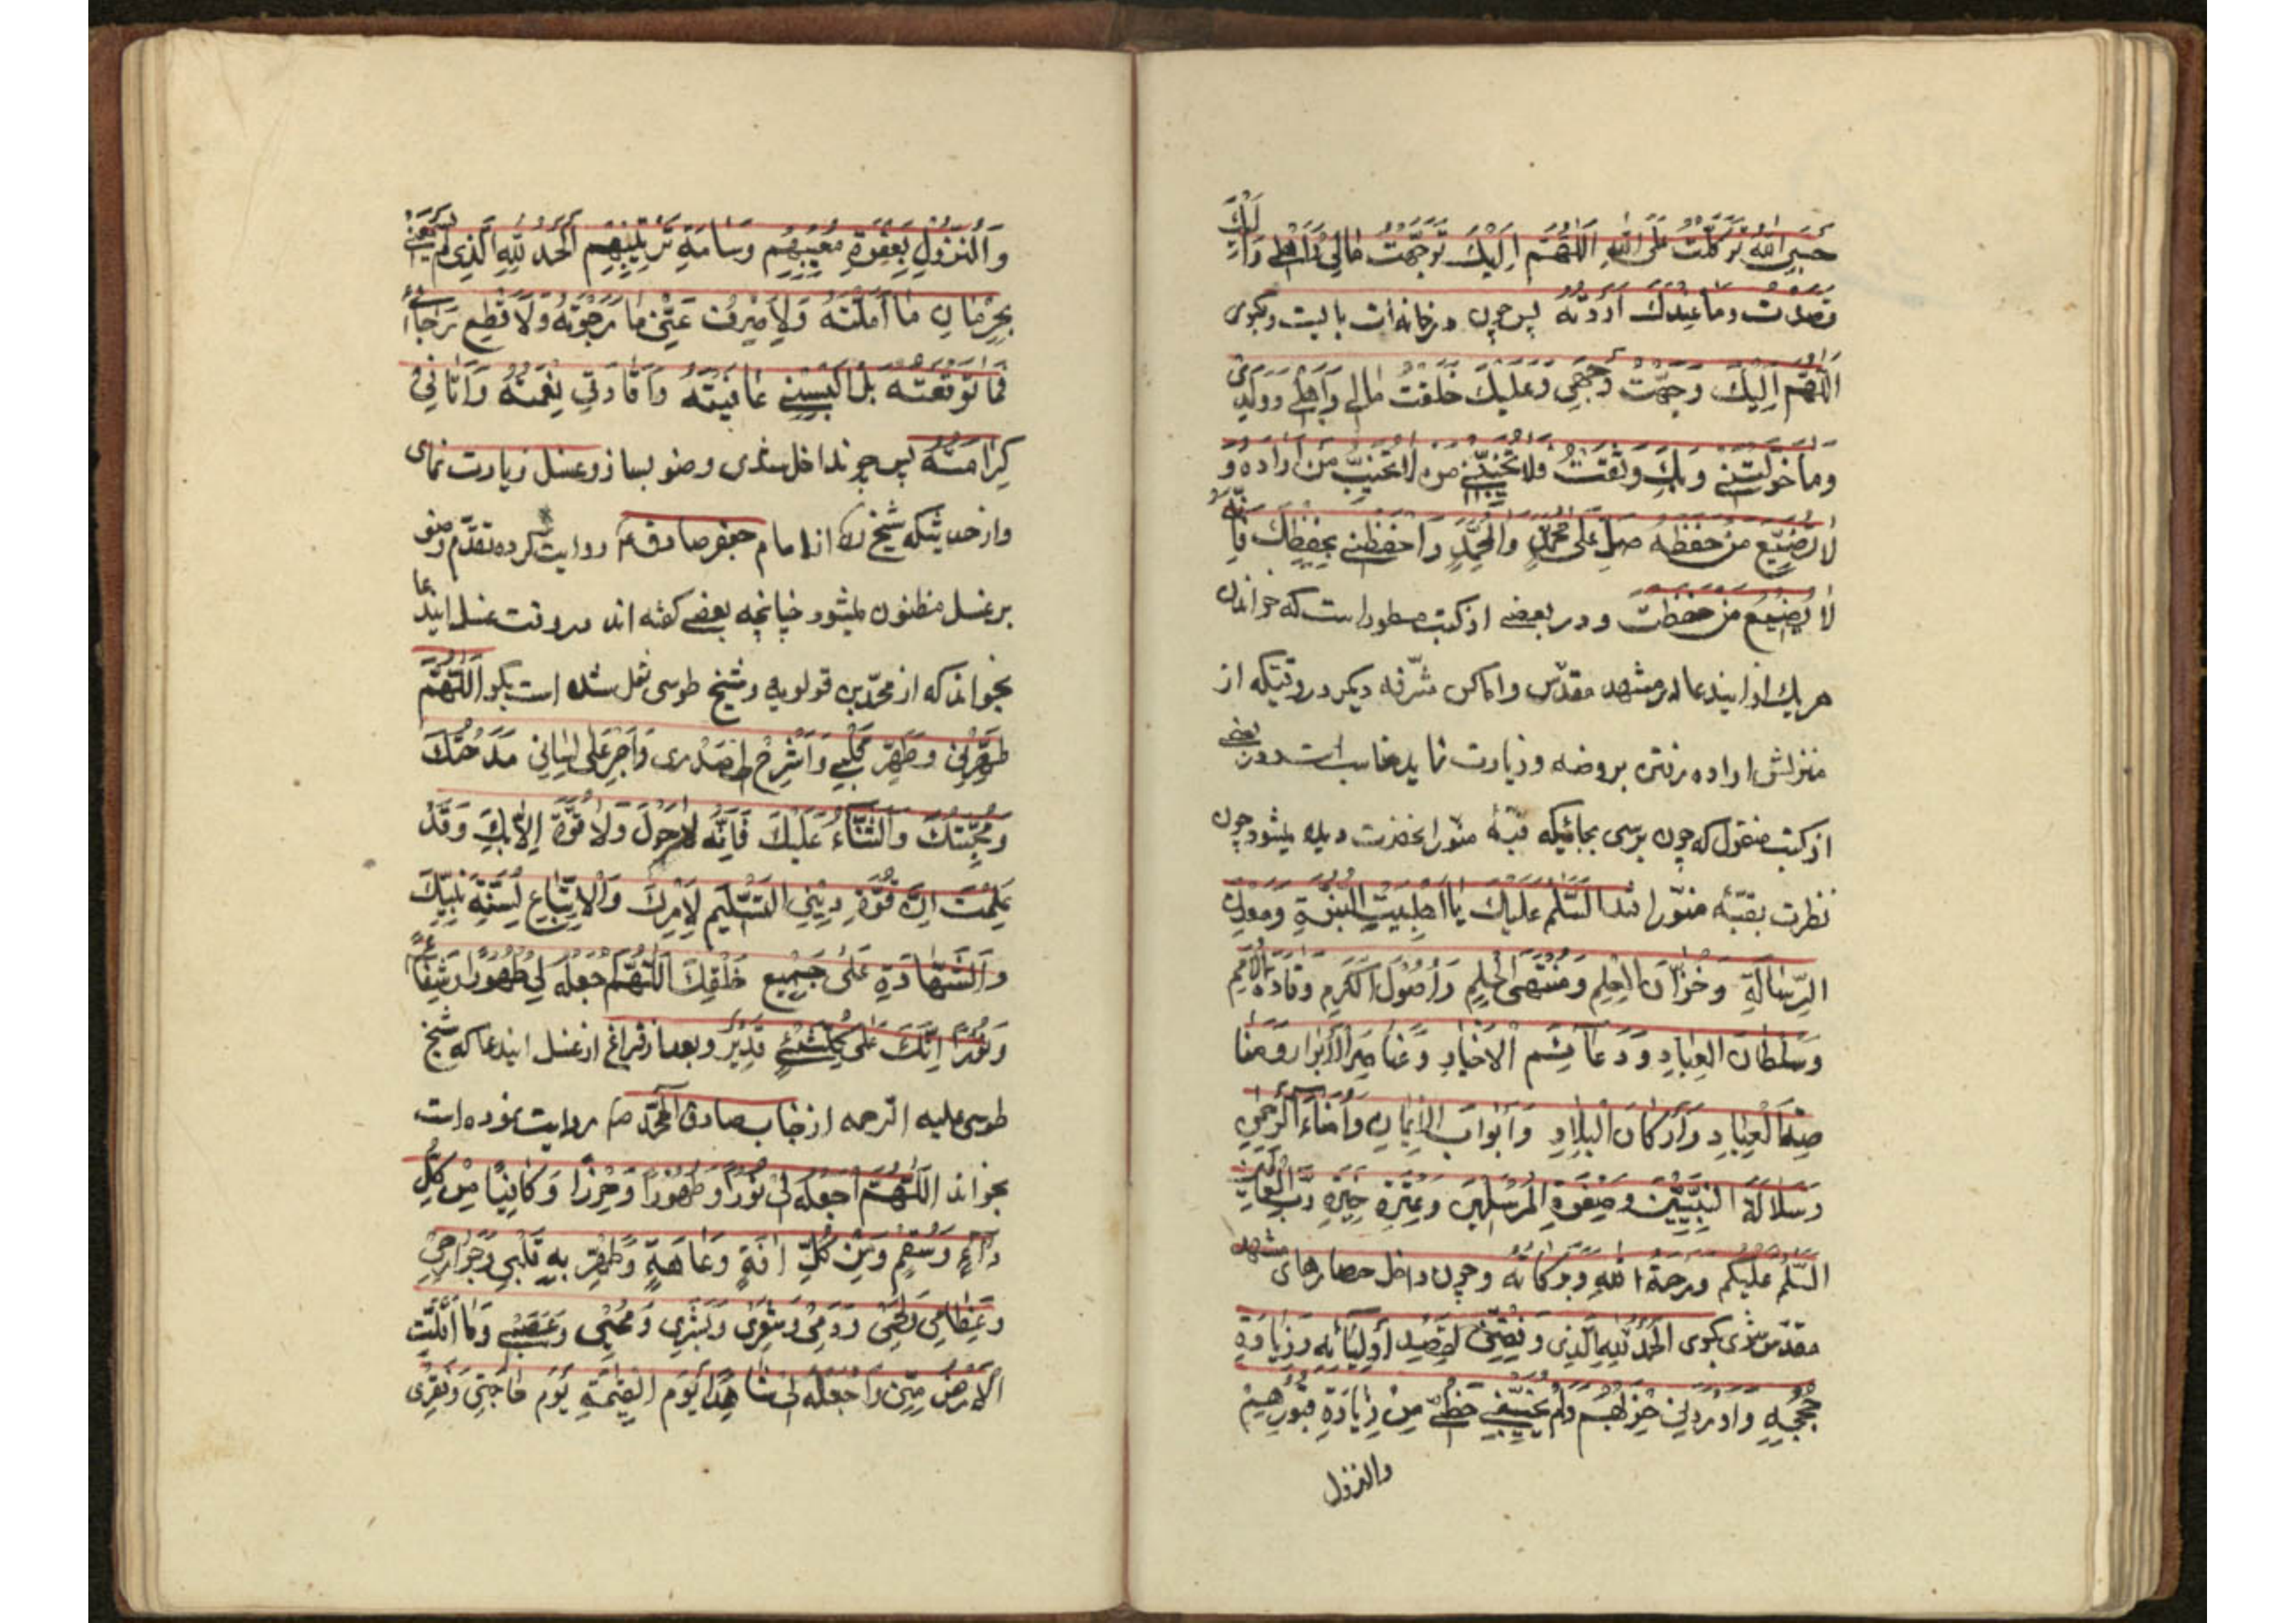 حَسْبِيَ اللّٰهُ تَوَكَّلْتُ عَلَى اللّٰهِ اَللّٰهُمَّ اِلَيْكَ تَوَجَّهْتُ
قَصَدْتُ وَمَا عِنْدَكَ اَرَدْتُهُ پس چون در خانه ات بایست و بگوی
اَللّٰهُمَّ اِلَيْكَ وَجَّهْتُ وَجْهِي وَعَلَيْكَ خَلَّفْتُ مَالِي وَاَهْلِي وَوَلَدِي
وَمَا خَوَّلْتَنِي وَبِكَ وَثِقْتُ فَلَا تُخَيِّبْنِي مَنْ لَا يُخَيِّبُ مَنْ اَرَادَهُ وَ
لَا يُضَيِّعُ مَنْ حَفِظَهُ صَلِّ عَلٰى مُحَمَّدٍ وَاٰلِ مُحَمَّدٍ وَاحْفَظْنِي بِحِفْظِكَ فَاِنَّهُ
لَا يُضَيِّعُ مَنْ حَفِظْتَ و در بعضی از کتب مسطور است که خواندن
هر یك از اینندعا در مشهد مقدّس و اماکن مشرّفه دیگر در وقتیکه از
منزلش اراده رفتن بروضه و زیارت نماید مناسب است و در بعضی
از کتب منقول که چون برسی بجائیکه قبّهٔ منوّر انحضرت دیده میشود چون
نظرت بقبّهٔ منوّر افتد السَّلٰمُ عَلَيْكَ يٰا اَهْلَ بَيْتِ النُّبُوَّةِ وَمَعْدِنَ
الرِّسَالَةِ وَخُزَّانَ الْعِلْمِ وَمُنْتَهَى الْحِلْمِ وَاُصُولَ الْكَرَمِ وَقَادَةَ الْاُمَمِ
وَسُلْطَانَ الْعِبَادِ وَدَعَائِمَ الْاَخْيَارِ وَعَنَاصِرَ الْاَبْرَارِ
الْعِبَادِ وَاَرْكَانَ الْبِلَادِ وَاَبْوَابَ الْاِيمَانِ وَاُمَنَاءَ الرَّحْمٰنِ
وَسُلَالَةَ النَّبِيِّينَ وَصِفْوَةَ الْمُرْسَلِينَ وَعِتْرَةَ خِيَرَةِ رَبِّ الْعَالَمِينَ
السَّلٰمُ عَلَيْكُمْ وَرَحْمَةُ اللّٰهِ وَبَرَكَاتُهُ و چون داخل حصارهای مشهد
مقدّس شدی بگوی اَلْحَمْدُ لِلّٰهِ الَّذِي وَفَّقَنِي لِقَصْدِ اَوْلِيَائِهِ وَزِيَارَةِ
حُجَجِهِ وَاَوْرَدَنِي حَرَمَهُمْ وَلَمْ يَبْخَسْنِي حَظِّي مِنْ زِيَارَةِ قُبُورِهِمْ
والنزول
وَالنُّزُولِ بِعَقْوَةِ مُغَيَّبِهِمْ وَسَاحَةِ تُرْبَتِهِمْ اَلْحَمْدُ لِلّٰهِ الَّذِي لَمْ
بِحِرْمَانِ مَا اَمَّلْتُهُ وَلَا صَرَفَ عَنِّي مَا رَجَوْتُهُ وَلَا قَطَعَ رَجَائِي
فِيمَا تَوَقَّعْتُهُ بَلْ اَلْبَسَنِي عَافِيَتَهُ وَاَفَادَنِي نِعْمَتَهُ وَاٰتَانِي
كَرَامَتَهُ پس چون داخل شدی وضو بساز و غسل زیارت نمای
و از حدیثیکه شیخ ره از امام جعفر صادق ع روایت کرده تقدّم وضو
بر غسل مظنون میشود چنانچه بعضی گفته اند در وقت غسل ایندعا
بخواند که از محمّد بن قولویه و شیخ طوسی نقل شده است بگو اَللّٰهُمَّ
طَهِّرْنِي وَطَهِّرْ قَلْبِي وَاشْرَحْ لِي صَدْرِي وَاَجْرِ عَلٰى لِسَانِي مَدْحَتَكَ
وَمَحَبَّتَكَ وَالثَّنَاءَ عَلَيْكَ فَاِنَّهُ لَا حَوْلَ وَلَا قُوَّةَ اِلَّا بِكَ وَقَدْ
عَلِمْتُ اَنَّ قُوَّةَ دِينِي التَّسْلِيمُ لِاَمْرِكَ وَالْاِتِّبَاعُ لِسُنَّةِ نَبِيِّكَ
وَالشَّهَادَةُ عَلٰى جَمِيعِ خَلْقِكَ اَللّٰهُمَّ اجْعَلْهُ لِي طَهُورًا وَشِفَاءً
وَنُورًا اِنَّكَ عَلٰى كُلِّ شَيْءٍ قَدِيرٌ و بعد از فراغ از غسل ایندعا که شیخ
طوسی علیه الرّحمه از جناب صادق آل محمّد ص روایت نموده است
بخواند اَللّٰهُمَّ اجْعَلْهُ لِي نُورًا وَطَهُورًا وَحِرْزًا وَكَافِيًا مِنْ كُلِّ
دَاءٍ وَسُقْمٍ وَمِنْ كُلِّ اٰفَةٍ وَعَاهَةٍ وَطَهِّرْ بِهِ قَلْبِي وَجَوَارِحِي
وَعِظَامِي وَلَحْمِي وَدَمِي وَشَعْرِي وَبَشَرِي وَمُخِّي وَعَصَبِي وَمَا اَقَلَّتِ
الْاَرْضُ مِنِّي وَاجْعَلْهُ لِي شَاهِدًا يَوْمَ الْقِيٰمَةِ يَوْمَ حَاجَتِي وَفَقْرِي